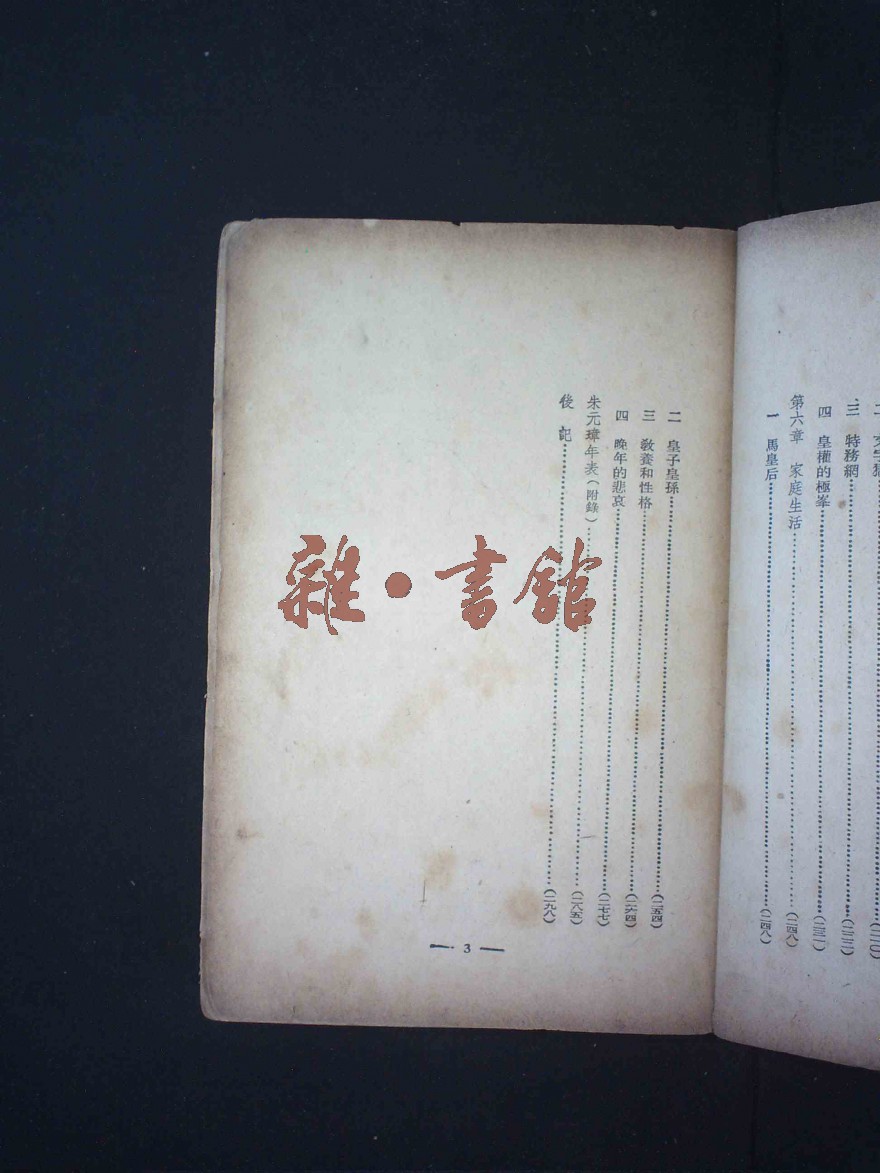 二 文字獄 (二二〇)
三 特務網 (二二二)
四 皇權的極峯 (二三一)
第六章 家庭生活 (二四八)
一 馬皇后 (二四八)
二 皇子皇孫 (二五四)
三 敎養和性格 (二六四)
四 晚年的悲哀 (二七七)
朱元璋年表(附錄) (二八五)
後記 (二九八)
— 3 —
雜·書館